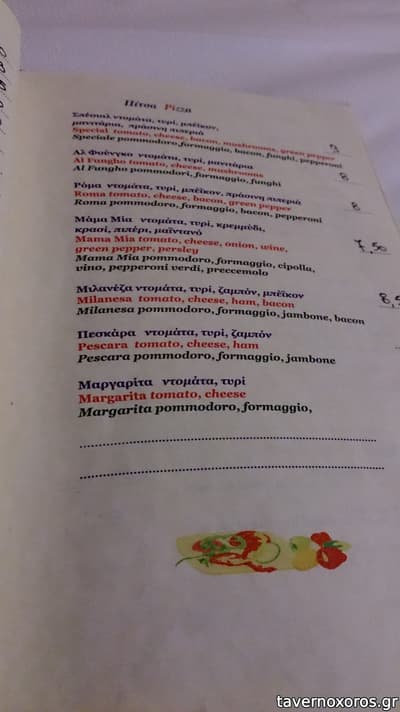 Πέτσα Pizza
Σπέσιαλ ντομάτα, τυρί, μπέϊκον,
μανιτάρια, πράσινη πιπεριά
Special tomato, cheese, bacon, mushrooms, green pepper
Speciale pommodoro, formaggio, bacon, funghi, pepperoni
Αλ Φούνγκο ντομάτα, τυρί, μανιτάρια
Al Fungho tomato, cheese, mushrooms 8
Al Fungho pommodori, formaggio, funghi
Ρόμα ντομάτα, τυρί, μπέϊκον, πράσινη πιπεριά
Roma tomato, cheese, bacon, green pepper 8
Roma pommodoro, formaggio, bacon, pepperoni
Μάμα Μία ντομάτα, τυρί, κρεμμύδι,
κρασί, πιπέρι, μαϊντανό
Mama Mia tomato, cheese, onion, wine, 7,50
green pepper, persley
Mama Mia pommodoro, formaggio, cipolla,
vino, pepperoni verdi, preccemolo
Μιλανέζα ντομάτα, τυρί, ζαμπόν, μπέϊκον
Milanesa tomato, cheese, ham, bacon
Milanesa pommodoro, formaggio, jambone, bacon
Πεσκάρα ντομάτα, τυρί, ζαμπόν
Pescara tomato, cheese, ham
Pescara pommodoro, formaggio, jambone
Μαργαρίτα ντομάτα, τυρί
Margarita tomato, cheese
Margarita pommodoro, formaggio,
tavernoxoros.gr